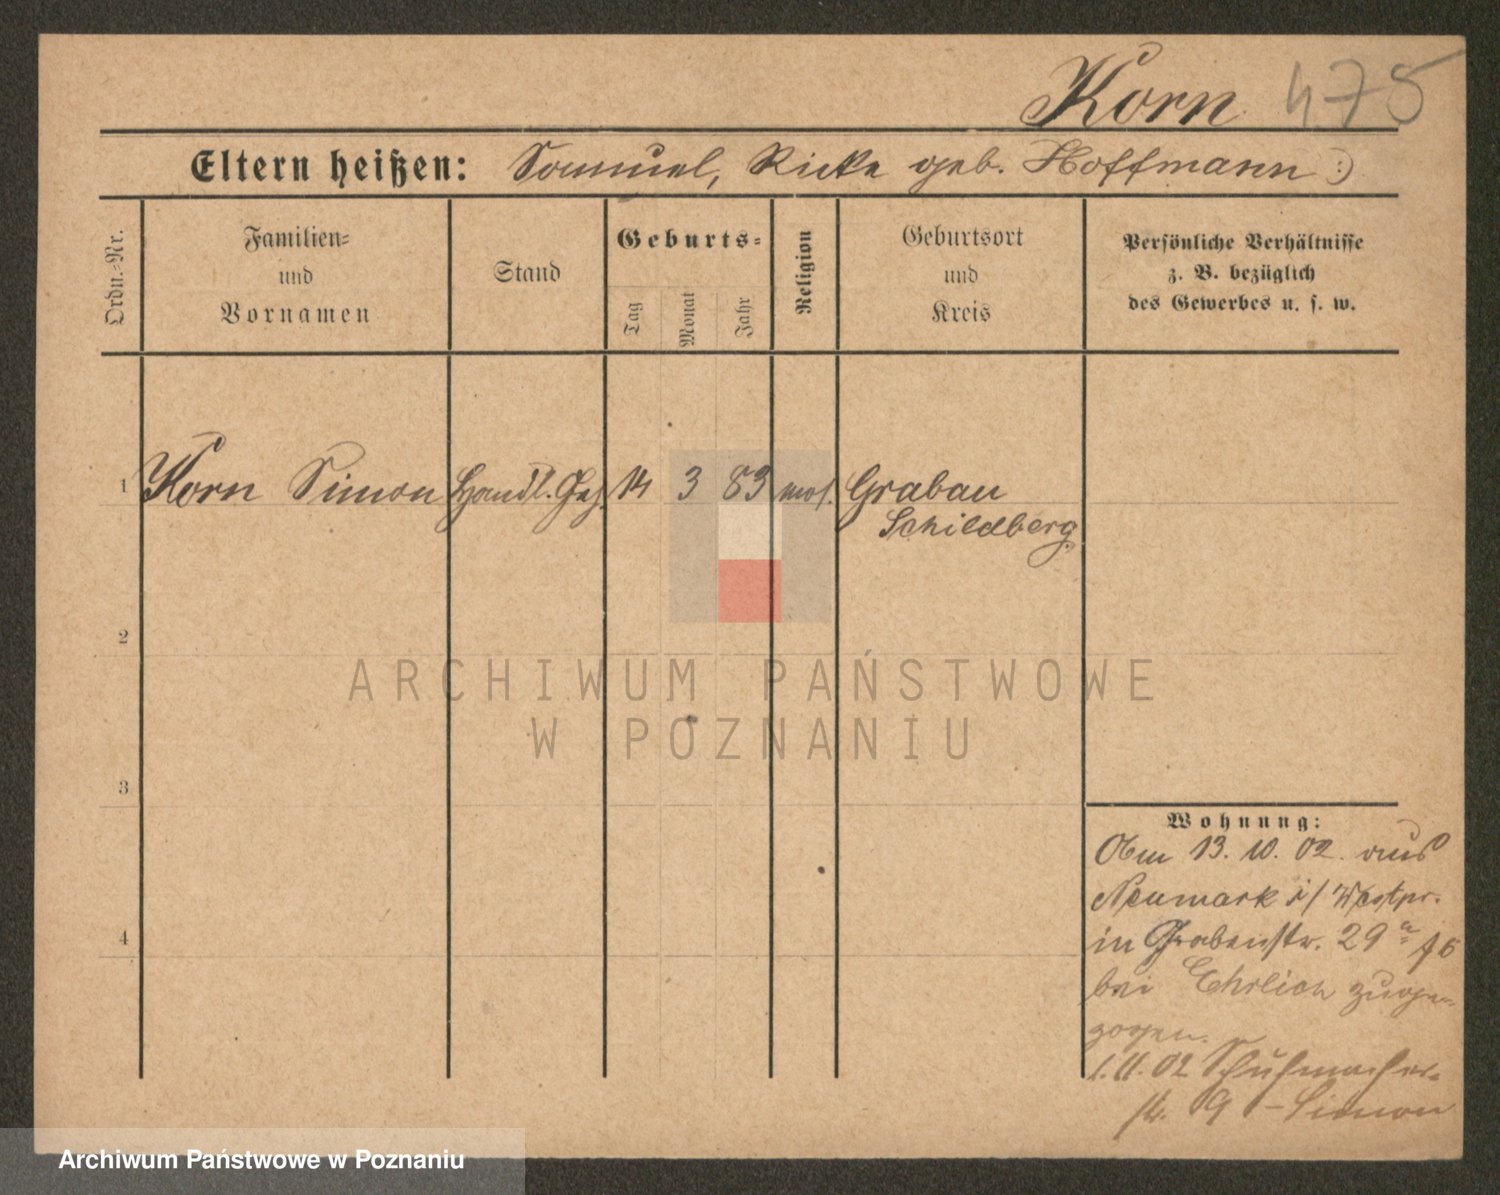 Korn 475
Eltern heißen: Samuel, Ricke geb. Hoffmann :)
Ordn.-Nr.
Familien-
und
Vornamen
Stand
Geburts-
Tag
Monat
Jahr
Religion
Geburtsort
und
Kreis
Persönliche Verhältnisse
z. B. bezüglich
des Gewerbes u. s. w.
1 Korn Simon Handl. Geh. 14 3 83 mos. Grabau
Schildberg
2
3
4
ARCHIWUM PAŃSTWOWE
W POZNANIU
Wohnung:
13. 10. 02. aus
Neumark i/ Westpr.
in Grabenstr. 29 a
bei Ehrlich zuge-
zogen.
1.11.02 Schuhmacher-
str. 9 - Simon
Archiwum Państwowe w Poznaniu